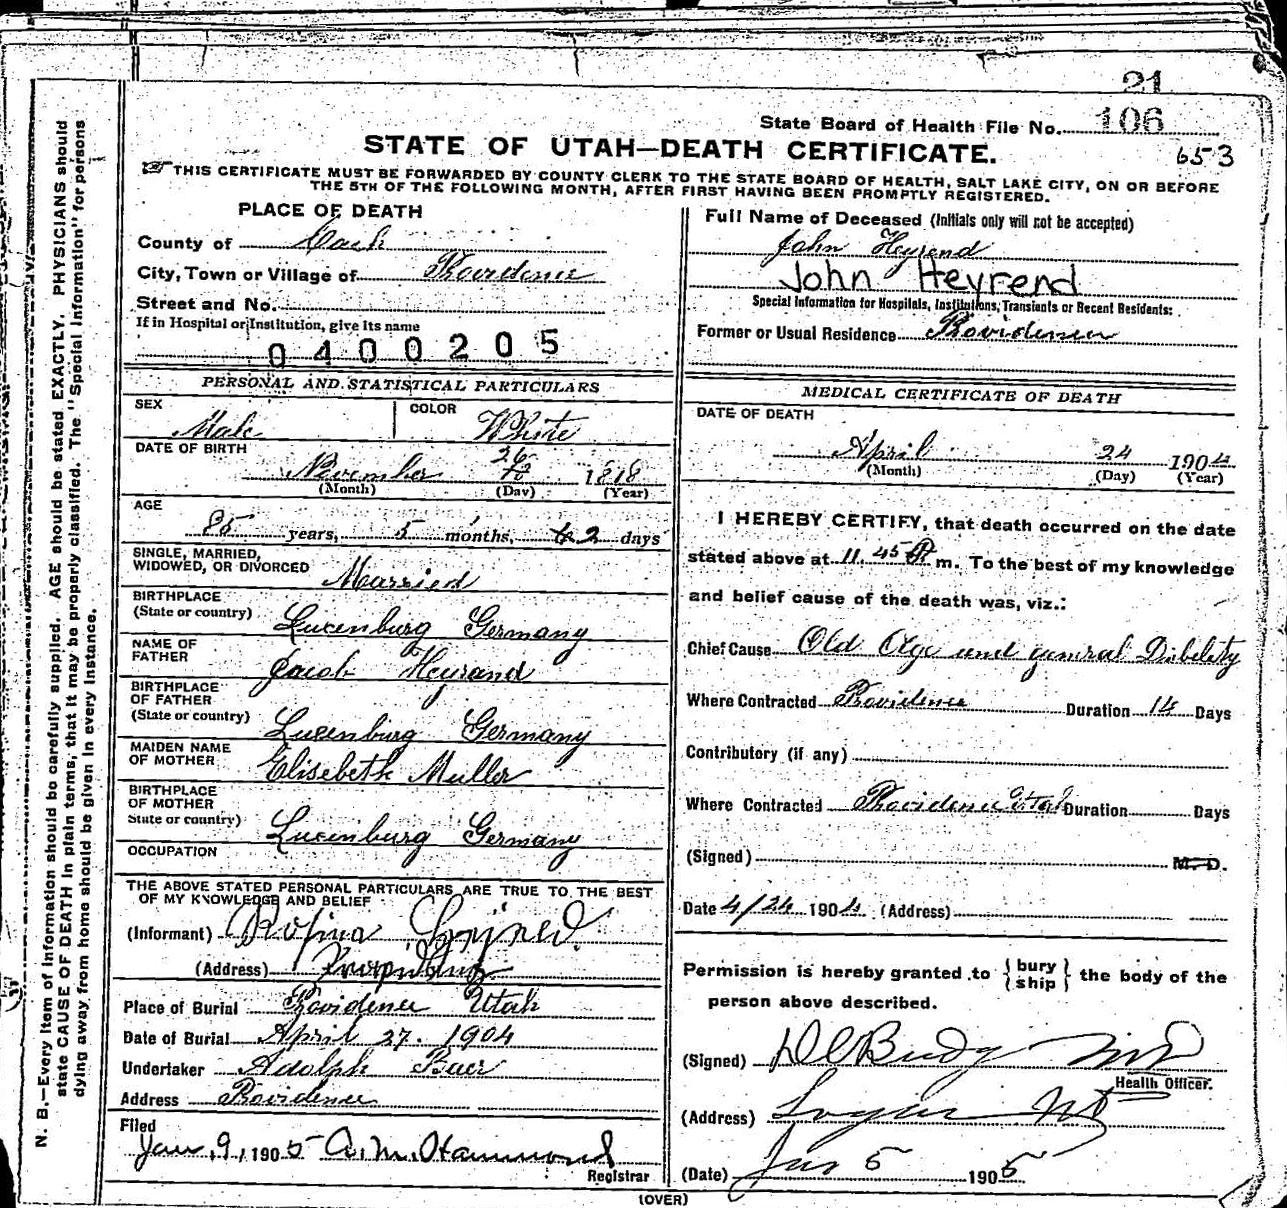 21
State Board of Health File No. 106
STATE OF UTAH—DEATH CERTIFICATE.
653
THIS CERTIFICATE MUST BE FORWARDED BY COUNTY CLERK TO THE STATE BOARD OF HEALTH, SALT LAKE CITY, ON OR BEFORE
THE 5TH OF THE FOLLOWING MONTH, AFTER FIRST HAVING BEEN PROMPTLY REGISTERED.
N. B.—Every item of information should be carefully supplied. AGE should be stated EXACTLY. PHYSICIANS should
state CAUSE OF DEATH in plain terms, that it may be properly classified. The "Special Information" for persons
dying away from home should be given in every instance.
PLACE OF DEATH
County of Cach
City, Town or Village of Providence
Street and No.
If in Hospital or Institution, give its name
0400205
PERSONAL AND STATISTICAL PARTICULARS
SEX COLOR
Male White
DATE OF BIRTH
November 26 1818
(Month) (Day) (Year)
AGE
85 years, 5 months, 2 days
SINGLE, MARRIED,
WIDOWED, OR DIVORCED Married
BIRTHPLACE
(State or country) Luxenburg Germany
NAME OF
FATHER Jacob Heyrand
BIRTHPLACE
OF FATHER
(State or country) Luxenburg Germany
MAIDEN NAME
OF MOTHER Elisebeth Muller
BIRTHPLACE
OF MOTHER
State or country) Luxenburg Germany
OCCUPATION
THE ABOVE STATED PERSONAL PARTICULARS ARE TRUE TO THE BEST
OF MY KNOWLEDGE AND BELIEF
(Informant) Rosina
(Address)
Place of Burial Providence Utah
Date of Burial April 27. 1904
Undertaker Adolph Baer
Address Providence
Filed
Jan. 9, 1905 A. M. Hammond
Registrar
Full Name of Deceased (Initials only will not be accepted)
John Heyrend
John Heyrend
Special Information for Hospitals, Institutions, Transients or Recent Residents:
Former or Usual Residence Providence
MEDICAL CERTIFICATE OF DEATH
DATE OF DEATH
April 24 1904
(Month) (Day) (Year)
I HEREBY CERTIFY, that death occurred on the date
stated above at 11.45 P m. To the best of my knowledge
and belief cause of the death was, viz.:
Chief Cause Old Age and general Dibility
Where Contracted Providence Duration 14 Days
Contributory (if any)
Where Contracted Providence Utah Duration Days
(Signed) M. D.
Date 4/24 1904 (Address)
Permission is hereby granted to {bury
ship} the body of the
person above described.
(Signed) D C Budge MD
Health Officer.
(Address) Logan
(Date) Jan 5 1905
(OVER)